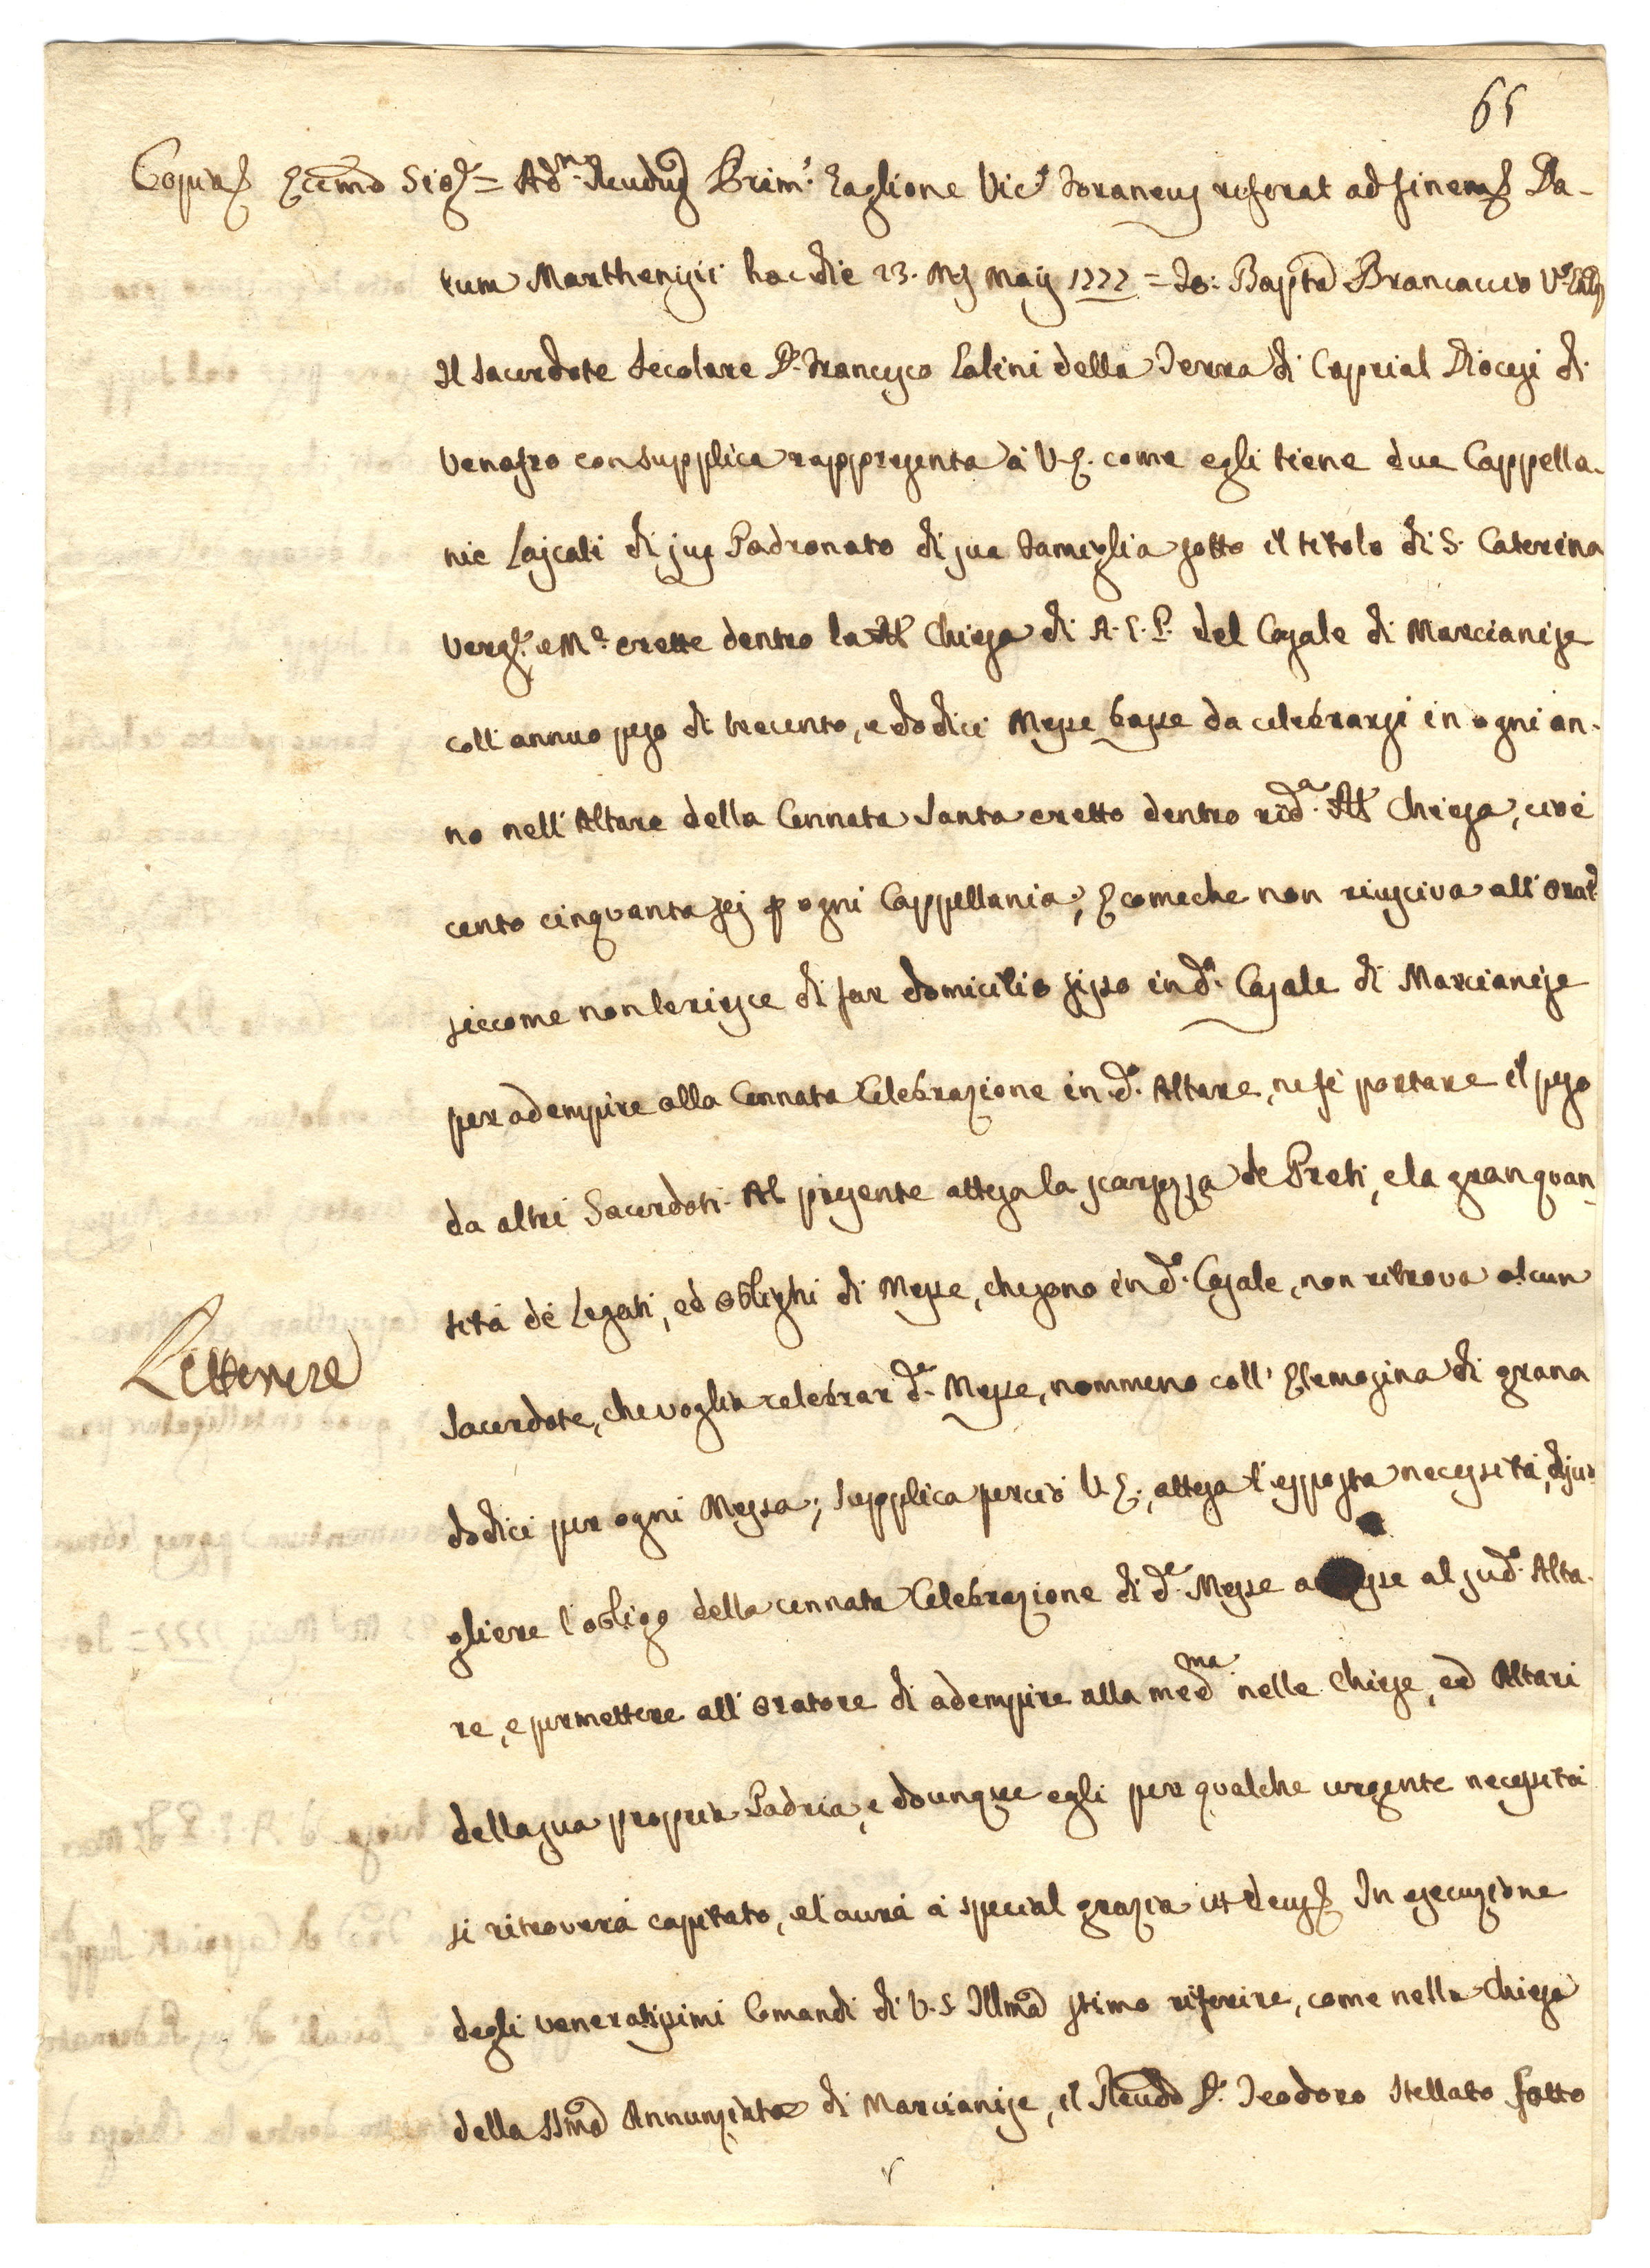 65
Copia Eccmo Sigr = Adm. Reudus Prim. Zaglione Vics Foraneus referat ad finem Da-
tum Marthenisii hac die 23. Ms Maij 1777 = Jo: Bapta Brancaccio
Il Sacerdote Secolare D. Francesco Lalini della Terra di Caprial Diocesi di
Venafro con supplica rappresenta à V. E. come egli tiene due Cappella-
nie Laicali di jus Padronato di sua Famiglia sotto il titolo di S. Caterina
Verge. e Ma. erette dentro la Al Chiesa di A. G. P. del Casale di Marcianise
coll'annuo peso di trecento, e dodici Messe basse da celebrarsi in ogni an-
no nell'Altare della Cennata Santa eretto dentro rida. Al Chiesa, cioè
cento cinquanta sei p ogni Cappellania; E comeche non riusciva all'Orate
siccome non le riesce di far domicilio fisso in do. Casale di Marcianise
per adempire alla Cennata Celebrazione in do. Altare, ne fè portare il peso
da altri Sacerdoti. Al presente attesa la scarsezza de Preti, e la gran quan-
tità dè Legati, ed Oblighi di Messe, che sono in do. Casale, non ritrova alcun
Sacerdote, che voglia celebrar de. Messe, nommeno coll'Elemosina di grana
dodici per ogni Messa; Supplica perciò V. E., attesa l'esposta necessità, disco-
gliere l'obligo della cennata Celebrazione di de. Messe al sudo. Alta-
re, e permettere all'Oratore di adempire alla medma nelle Chiese, ed Altari
della sua propria Padria, e dounque egli per qualche urgente necessità
si ritroverà capitato, e l'aurà à special grazia ut Deus In esecuzione
degli veneratissimi Comandi di V. S. Illma stimo riferire, come nella Chiesa
della SSma Annunziata di Marcianise, il Reudo D. Teodoro Stellato fatto